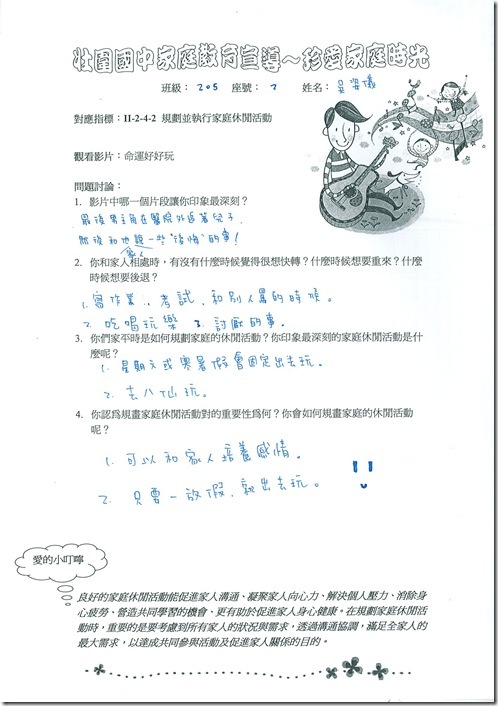 壯圍國中家庭教育宣導～珍愛家庭時光
班級： 205 座號： 2 姓名：吳姿儀
對應指標：II-2-4-2 規劃並執行家庭休閒活動
觀看影片：命運好好玩
問題討論：
1. 影片中哪一個片段讓你印象最深刻？
最後男主角在醫院外追著兒子，
然後和他說一些"後悔"的事！
家人
2. 你和家人相處時，有沒有什麼時候覺得很想快轉？什麼時候想要重來？什麼
時候想要後退？
1. 寫作業、考試、和別人罵的時候。
2. 吃喝玩樂 3. 討厭的事。
3. 你們家平時是如何規劃家庭的休閒活動？你印象最深刻的家庭休閒活動是什
麼呢？
1. 星期六或寒暑假會固定出去玩。
2. 去八仙玩。
4. 你認為規畫家庭休閒活動對的重要性為何？你會如何規畫家庭的休閒活動
呢？
1. 可以和家人培養感情。
2. 只要一放假，就出去玩。 !!
愛的小叮嚀
良好的家庭休閒活動能促進家人溝通、凝聚家人向心力、解決個人壓力、消除身
心疲勞、營造共同學習的機會、更有助於促進家人身心健康。在規劃家庭休閒活
動時，重要的是要考慮到所有家人的狀況與需求，透過溝通協調，滿足全家人的
最大需求，以達成共同參與活動及促進家人關係的目的。